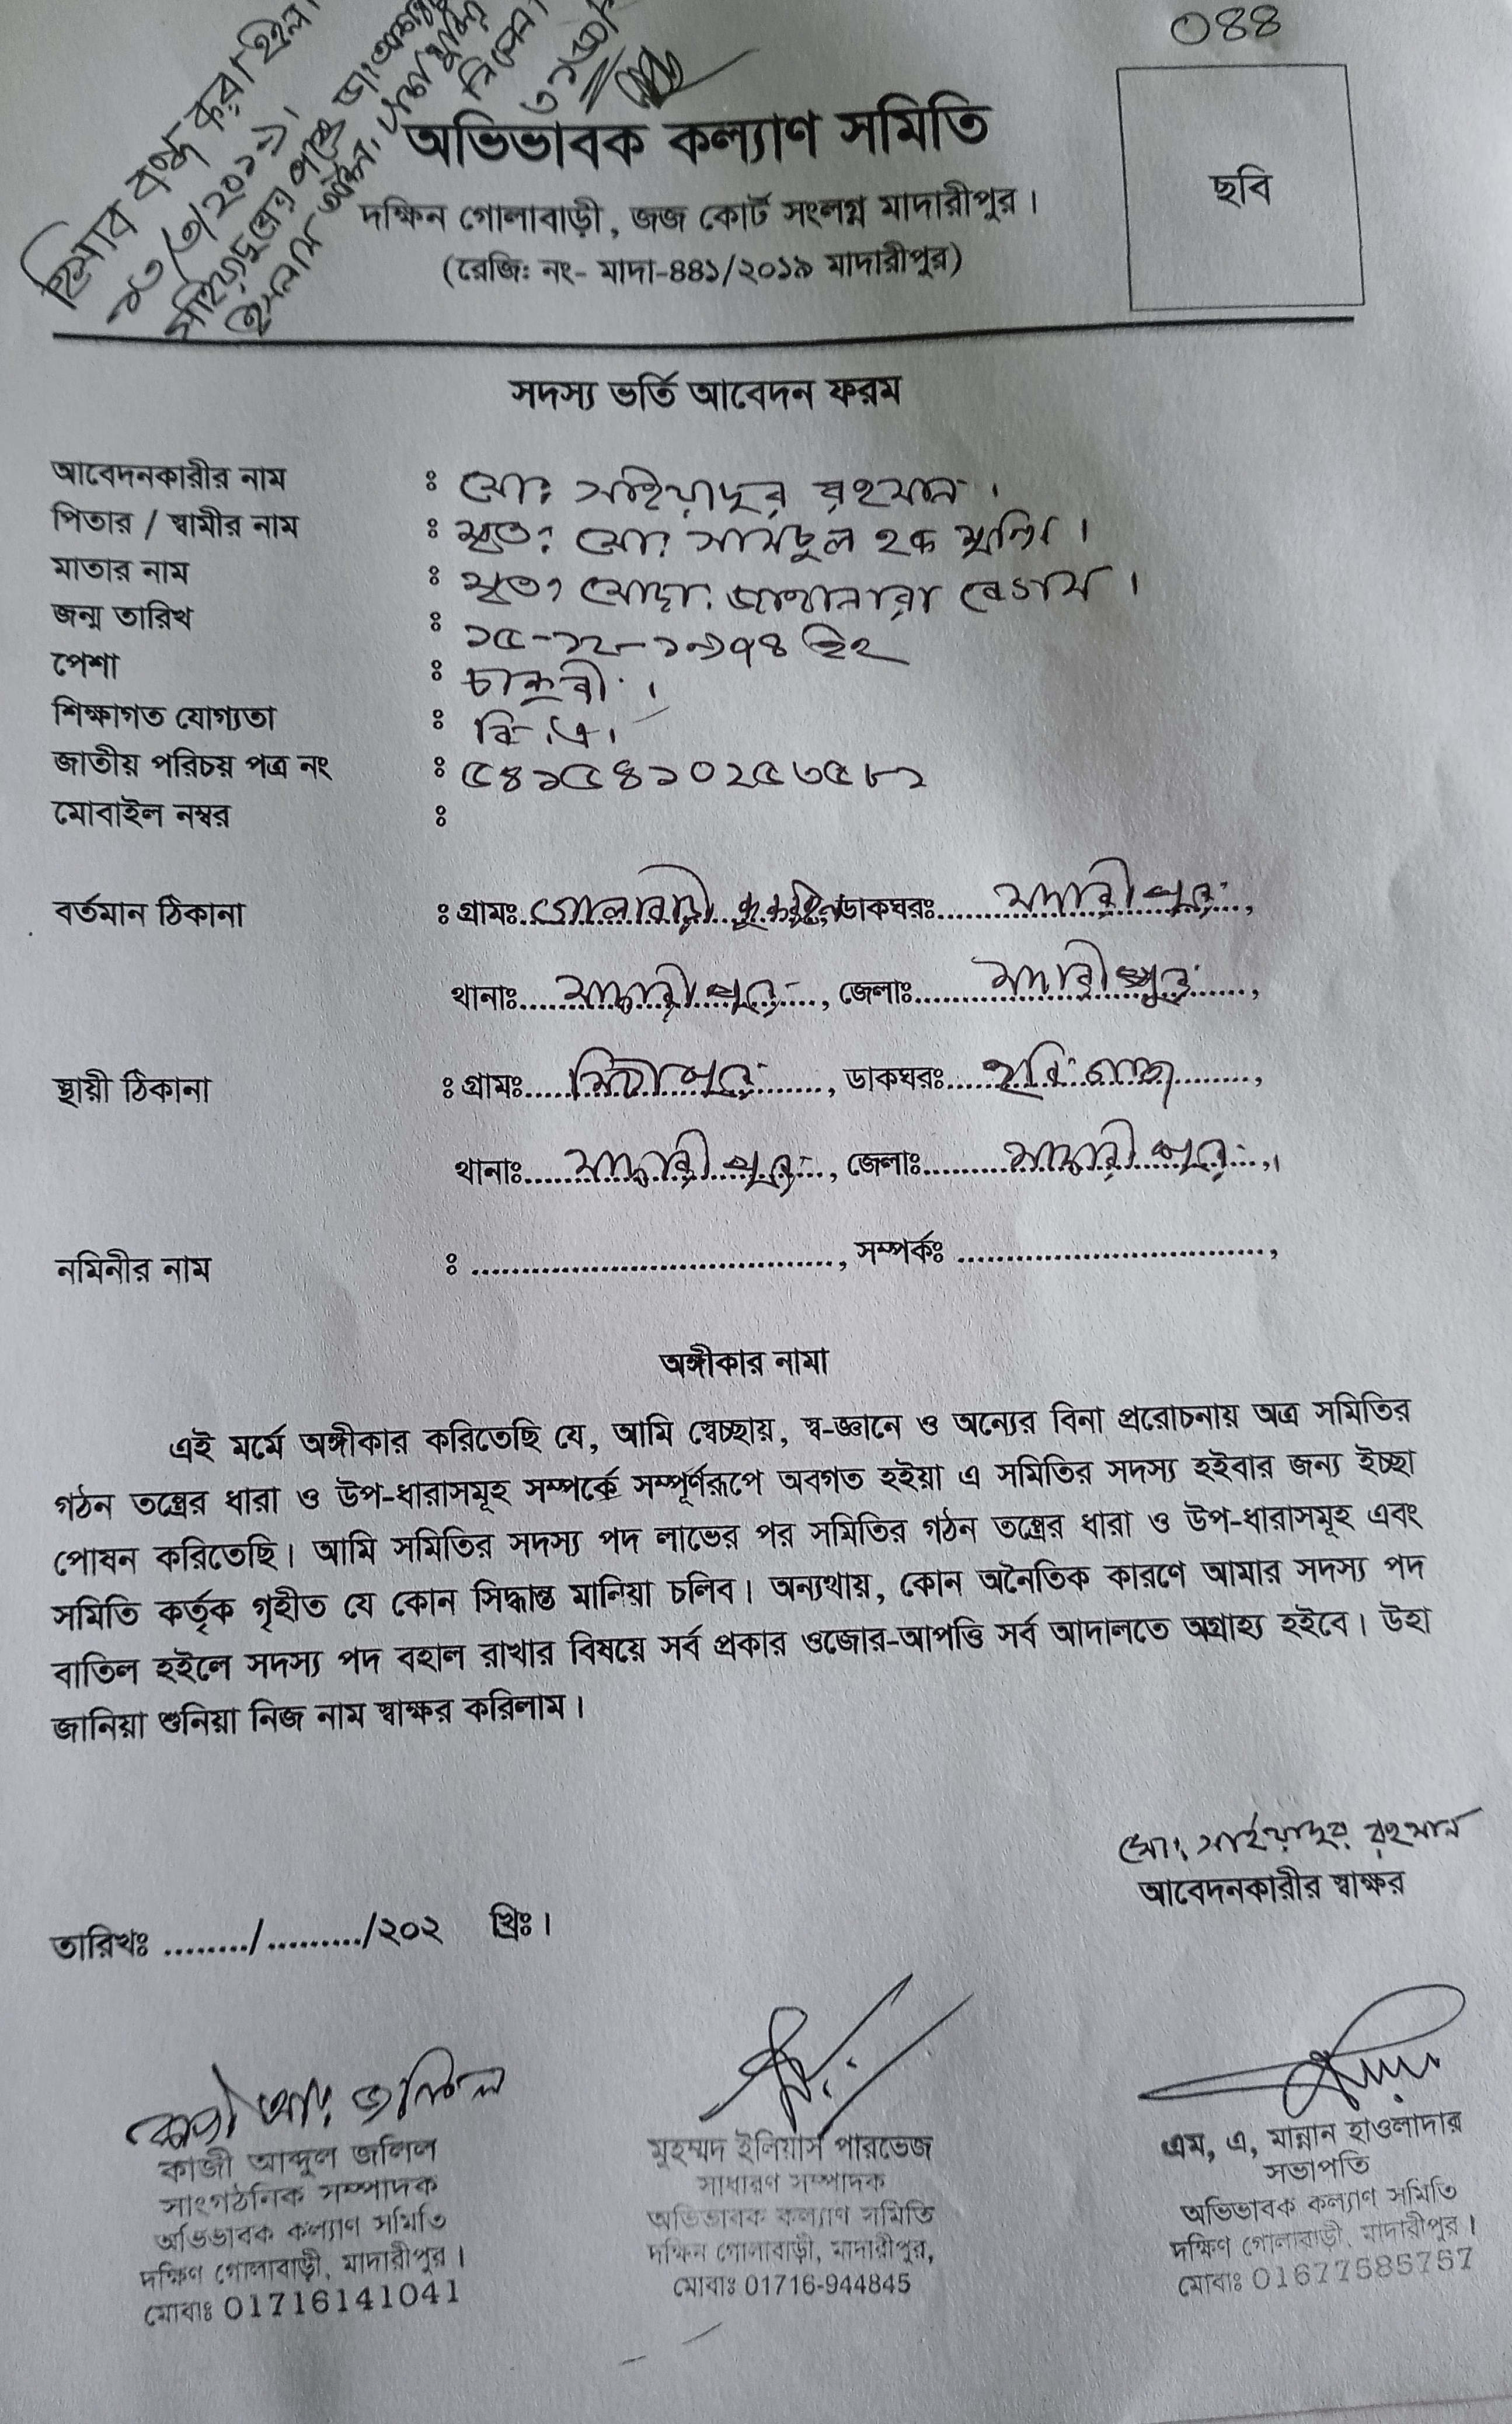 ০৪৪
হিসাব বন্ধ করা হইল।
অভিভাবক কল্যাণ সমিতি
দক্ষিন গোলাবাড়ী, জজ কোর্ট সংলগ্ন মাদারীপুর।
(রেজি: নং- মাদা-৪৪১/২০১৯ মাদারীপুর)
ছবি
সদস্য ভর্তি আবেদন ফরম
আবেদনকারীর নাম : মো: সাইয়াদুর রহমান।
পিতার / স্বামীর নাম : মৃত: মো: সামছুল হক মুন্সি।
মাতার নাম : মৃত: মোসা: জাহানারা বেগম।
জন্ম তারিখ : ১৫-১২-১৯৭৪ ইং
পেশা : চাকুরী।
শিক্ষাগত যোগ্যতা : বি.এ।
জাতীয় পরিচয় পত্র নং : ৫৪১৫৪১০২৫৩৫৮২
মোবাইল নম্বর :
বর্তমান ঠিকানা : গ্রামঃ গোলাবাড়ী ডাকঘরঃ মাদারীপুর,
থানাঃ মাদারীপুর, জেলাঃ মাদারীপুর,
স্থায়ী ঠিকানা : গ্রামঃ মিঠাপুর, ডাকঘরঃ হবিগঞ্জ,
থানাঃ মাদারীপুর, জেলাঃ মাদারীপুর,
নমিনীর নাম : ...................................., সম্পর্কঃ ................................,
অঙ্গীকার নামা
এই মর্মে অঙ্গীকার করিতেছি যে, আমি স্বেচ্ছায়, স্ব-জ্ঞানে ও অন্যের বিনা প্ররোচনায় অত্র সমিতির
গঠন তন্ত্রের ধারা ও উপ-ধারাসমূহ সম্পর্কে সম্পূর্ণরূপে অবগত হইয়া এ সমিতির সদস্য হইবার জন্য ইচ্ছা
পোষন করিতেছি। আমি সমিতির সদস্য পদ লাভের পর সমিতির গঠন তন্ত্রের ধারা ও উপ-ধারাসমূহ এবং
সমিতি কর্তৃক গৃহীত যে কোন সিদ্ধান্ত মানিয়া চলিব। অন্যথায়, কোন অনৈতিক কারণে আমার সদস্য পদ
বাতিল হইলে সদস্য পদ বহাল রাখার বিষয়ে সর্ব প্রকার ওজোর-আপত্তি সর্ব আদালতে অগ্রাহ্য হইবে। উহা
জানিয়া শুনিয়া নিজ নাম স্বাক্ষর করিলাম।
মো: সাইয়াদুর রহমান
আবেদনকারীর স্বাক্ষর
তারিখঃ ......../........./২০২ খ্রিঃ।
কাজী আঃ জলিল
কাজী আব্দুল জলিল
সাংগঠনিক সম্পাদক
অভিভাবক কল্যাণ সমিতি
দক্ষিণ গোলাবাড়ী, মাদারীপুর।
মোবাঃ 01716141041
মুহম্মদ ইলিয়াস পারভেজ
সাধারণ সম্পাদক
অভিভাবক কল্যাণ সমিতি
দক্ষিন গোলাবাড়ী, মাদারীপুর,
মোবাঃ 01716-944845
এম, এ, মান্নান হাওলাদার
সভাপতি
অভিভাবক কল্যাণ সমিতি
দক্ষিণ গোলাবাড়ী, মাদারীপুর।
মোবাঃ 01677585757